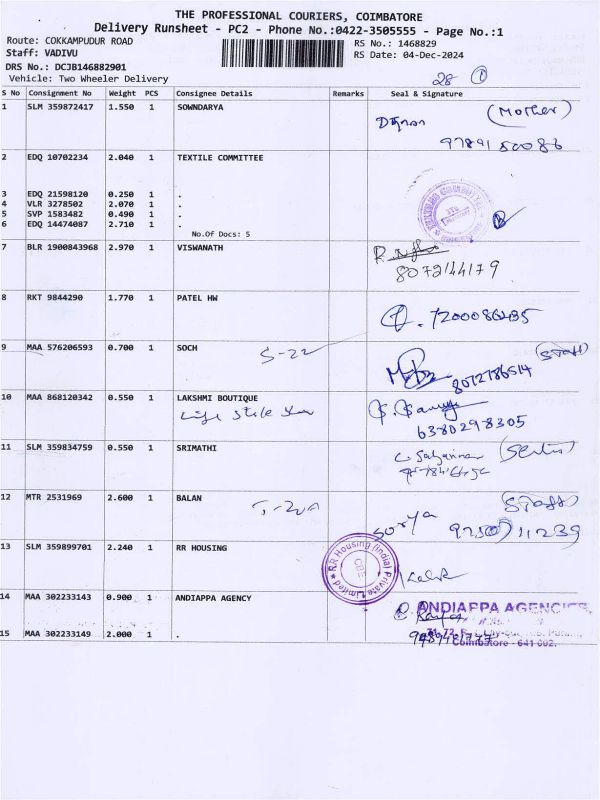 THE PROFESSIONAL COURIERS, COIMBATORE
Delivery Runsheet - PC2 - Phone No.:0422-3505555 - Page No.:1
Route: COKKAMPUDUR ROAD
RS No.: 1468829
Staff: VADIVU
RS Date: 04-Dec-2024
DRS No.: DCJB146882901
Vehicle: Two Wheeler Delivery
28 1
S No Consignment No Weight PCS Consignee Details Remarks Seal & Signature
1 SLM 359872417 1.550 1 SOWNDARYA (Mother)
97891 50086
2 EDQ 10702234 2.040 1 TEXTILE COMMITTEE
3 EDQ 21598120 0.250 1 .
4 VLR 3278502 2.070 1 .
5 SVP 1583482 0.490 1 .
6 EDQ 14474087 2.710 1 .
No.Of Docs: 5
7 BLR 1900843968 2.970 1 VISWANATH
8072144179
8 RKT 9844290 1.770 1 PATEL HW
7200086435
9 MAA 576206593 0.700 1 SOCH S-22 (STAFF)
8072786514
10 MAA 868120342 0.550 1 LAKSHMI BOUTIQUE
6380298305
11 SLM 359834759 0.550 1 SRIMATHI
12 MTR 2531969 2.600 1 BALAN (STAFF)
Sorya
13 SLM 359899701 2.240 1 RR HOUSING
RR Housing (India) Private Limited
CBE
14 MAA 302233143 0.900 1 ANDIAPPA AGENCY
ANDIAPPA AGENCIES,
15 MAA 302233149 2.000 1 .
Coimbatore - 641 002.